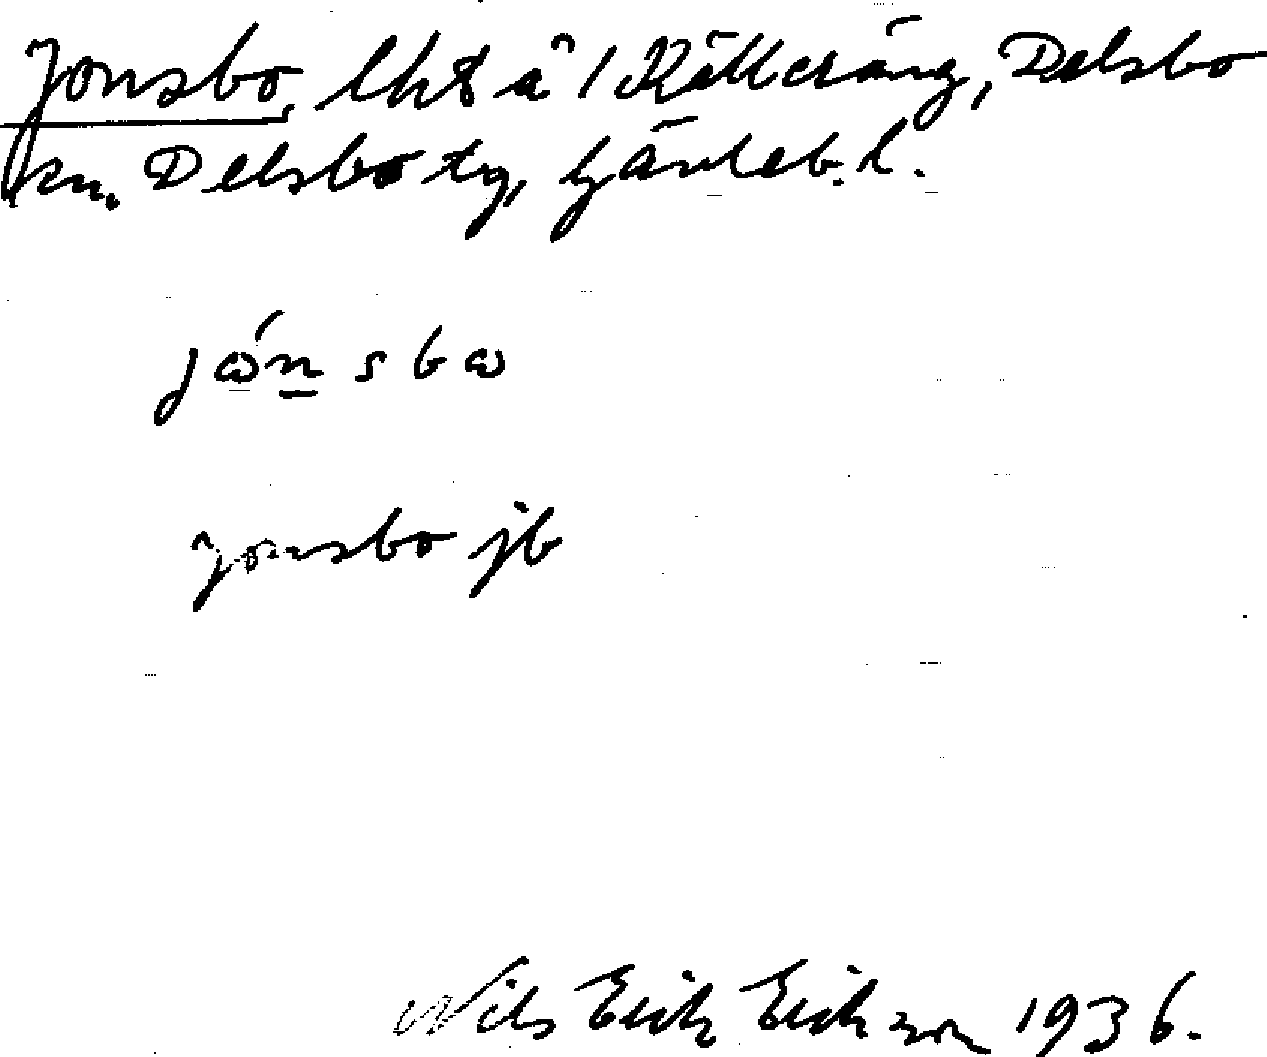 Jonsbo, lht å 1 Källeräng, Delsbo
sn. Delsbo tg, Gävleb. l.
jώn̲sbω
Jonsbo jb
Nils Erik Erikson 1936.